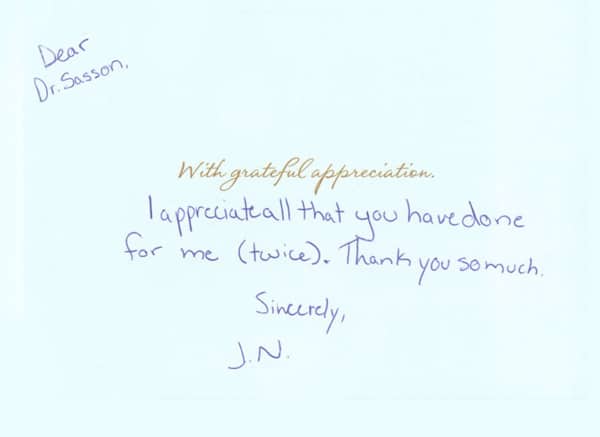 Dear
Dr. Sasson,
With grateful appreciation.
I appreciate all that you have done
for me (twice). Thank you so much.
Sincerely,
J.N.